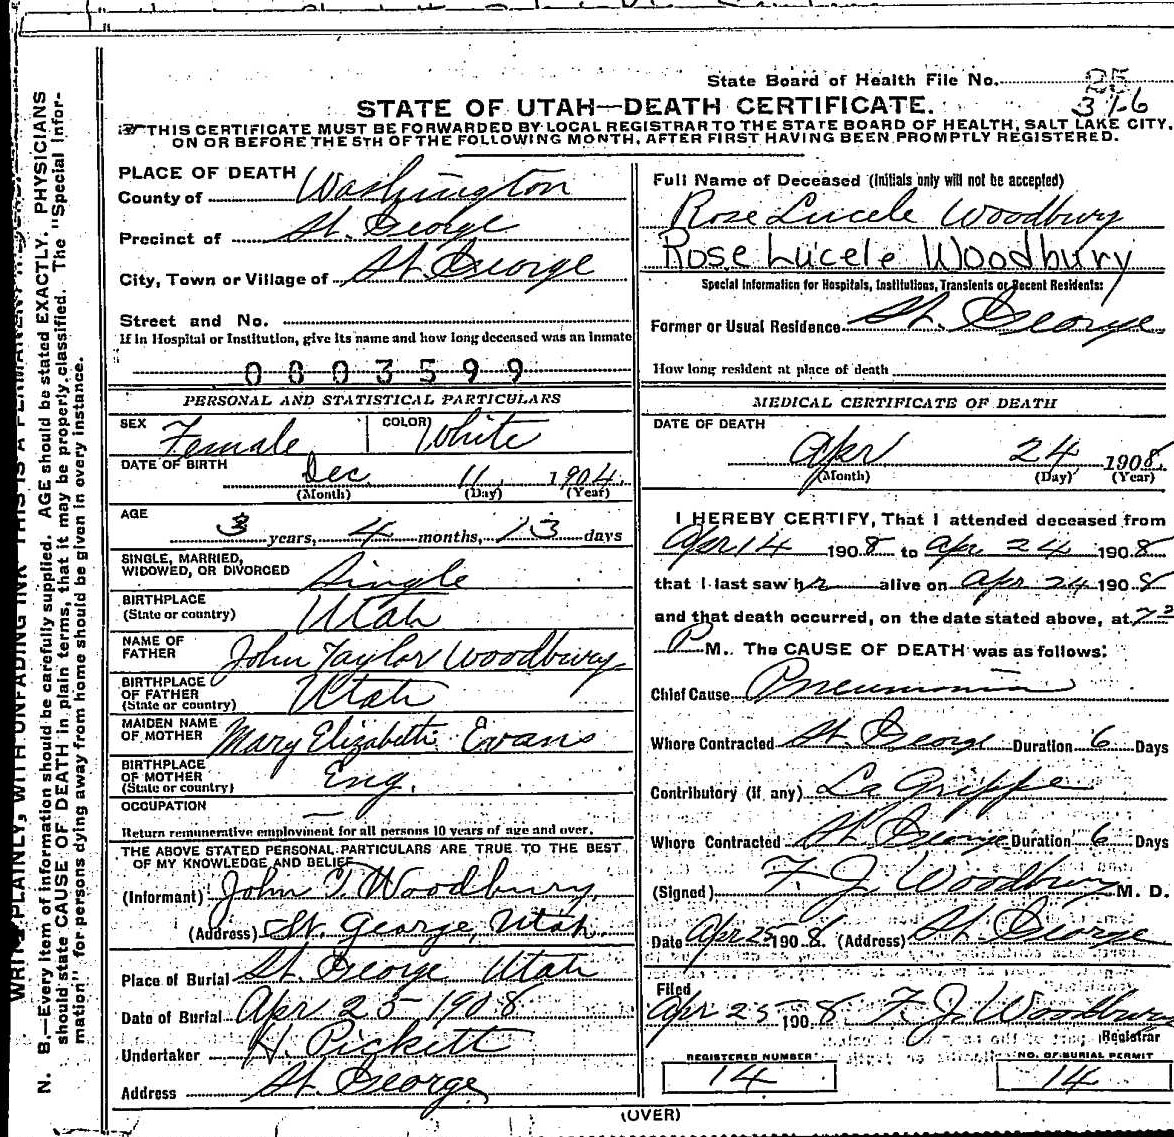 State Board of Health File No. 25
316
STATE OF UTAH—DEATH CERTIFICATE.
THIS CERTIFICATE MUST BE FORWARDED BY LOCAL REGISTRAR TO THE STATE BOARD OF HEALTH, SALT LAKE CITY,
ON OR BEFORE THE 5TH OF THE FOLLOWING MONTH, AFTER FIRST HAVING BEEN PROMPTLY REGISTERED.
PLACE OF DEATH
County of Washington
Precinct of St. George
City, Town or Village of St. George
Street and No.
If in Hospital or Institution, give its name and how long deceased was an inmate
0003599
PERSONAL AND STATISTICAL PARTICULARS
SEX Female COLOR White
DATE OF BIRTH Dec. 11 1904
(Month) (Day) (Year)
AGE
3 years, 4 months, 13 days
SINGLE, MARRIED,
WIDOWED, OR DIVORCED Single
BIRTHPLACE
(State or country) Utah
NAME OF
FATHER John Taylor Woodbury
BIRTHPLACE
OF FATHER
(State or country) Utah
MAIDEN NAME
OF MOTHER Mary Elizabeth Evans
BIRTHPLACE
OF MOTHER
(State or country) Eng.
OCCUPATION —
Return remunerative employment for all persons 10 years of age and over.
THE ABOVE STATED PERSONAL PARTICULARS ARE TRUE TO THE BEST
OF MY KNOWLEDGE AND BELIEF
(Informant) John T. Woodbury,
(Address) St. George, Utah.
Place of Burial St. George Utah
Date of Burial Apr 25 1908
Undertaker H. Pickett
Address St. George
Full Name of Deceased (Initials only will not be accepted)
Rose Lucele Woodbury
Rose Lucele Woodbury
Special Information for Hospitals, Institutions, Transients or Recent Residents:
Former or Usual Residence St. George
How long resident at place of death
MEDICAL CERTIFICATE OF DEATH
DATE OF DEATH
Apr 24 1908
(Month) (Day) (Year)
I HEREBY CERTIFY, That I attended deceased from
Apr 14 1908 to Apr 24 1908
that I last saw her alive on Apr 24 1908
and that death occurred, on the date stated above, at 7
P M. The CAUSE OF DEATH was as follows:
Chief Cause Pneumonia
Where Contracted St. George Duration 6 Days
Contributory (if any) La Grippe
Where Contracted St. George Duration 6 Days
(Signed) F. J. Woodbury M. D.
Date Apr 25 1908. (Address) St. George
Filed
Apr 25 1908 F. J. Woodbury
Registrar
REGISTERED NUMBER
14
NO. OF BURIAL PERMIT
14
(OVER)
WRITE PLAINLY, WITH UNFADING INK THIS IS A PERMANENT
N. B.—Every item of information should be carefully supplied. AGE should be stated EXACTLY. PHYSICIANS
should state CAUSE OF DEATH in plain terms, that it may be properly classified. The "Special Infor-
mation" for persons dying away from home should be given in every instance.